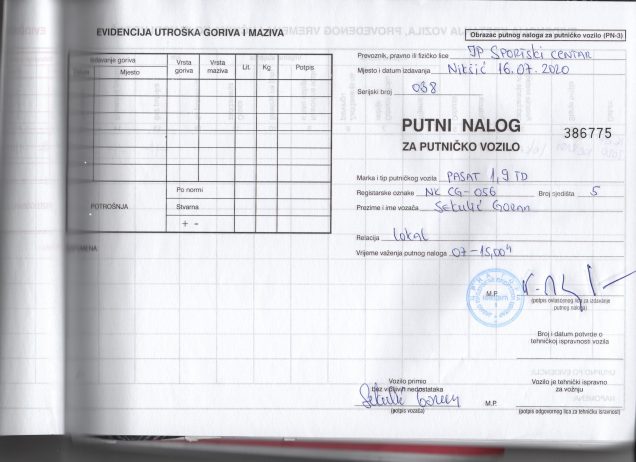 EVIDENCIJA UTROŠKA GORIVA I MAZIVA
Izdavanje goriva
Datum
Mjesto
Vrsta goriva
Vrsta maziva
Lit.
Kg
Potpis
POTROŠNJA
Po normi
Stvarna
+ -
Obrazac putnog naloga za putničko vozilo (PN-3)
Prevoznik, pravno ili fizičko lice JP SPORTSKI CENTAR
Mjesto i datum izdavanja Nikšić 16.07.2020
Serijski broj 038
PUTNI NALOG
386775
ZA PUTNIČKO VOZILO
Marka i tip putničkog vozila PASAT 1,9 TD
Registarske oznake NK CG-056 Broj sjedišta 5
Prezime i ime vozača Sekulić Goran
Relacija Lokal
Vrijeme važenja putnog naloga 07-15,00 h
M.P.
(potpis ovlašćenog lica za izdavanje
putnog naloga)
Broj i datum potvrde o
tehničkoj ispravnosti vozila
Vozilo primio
bez vidljivih nedostataka
Sekulić Goran
(potpis vozača)
M.P.
Vozilo je tehnički ispravno
za vožnju
(potpis odgovornog lica za tehničku ispravnost)